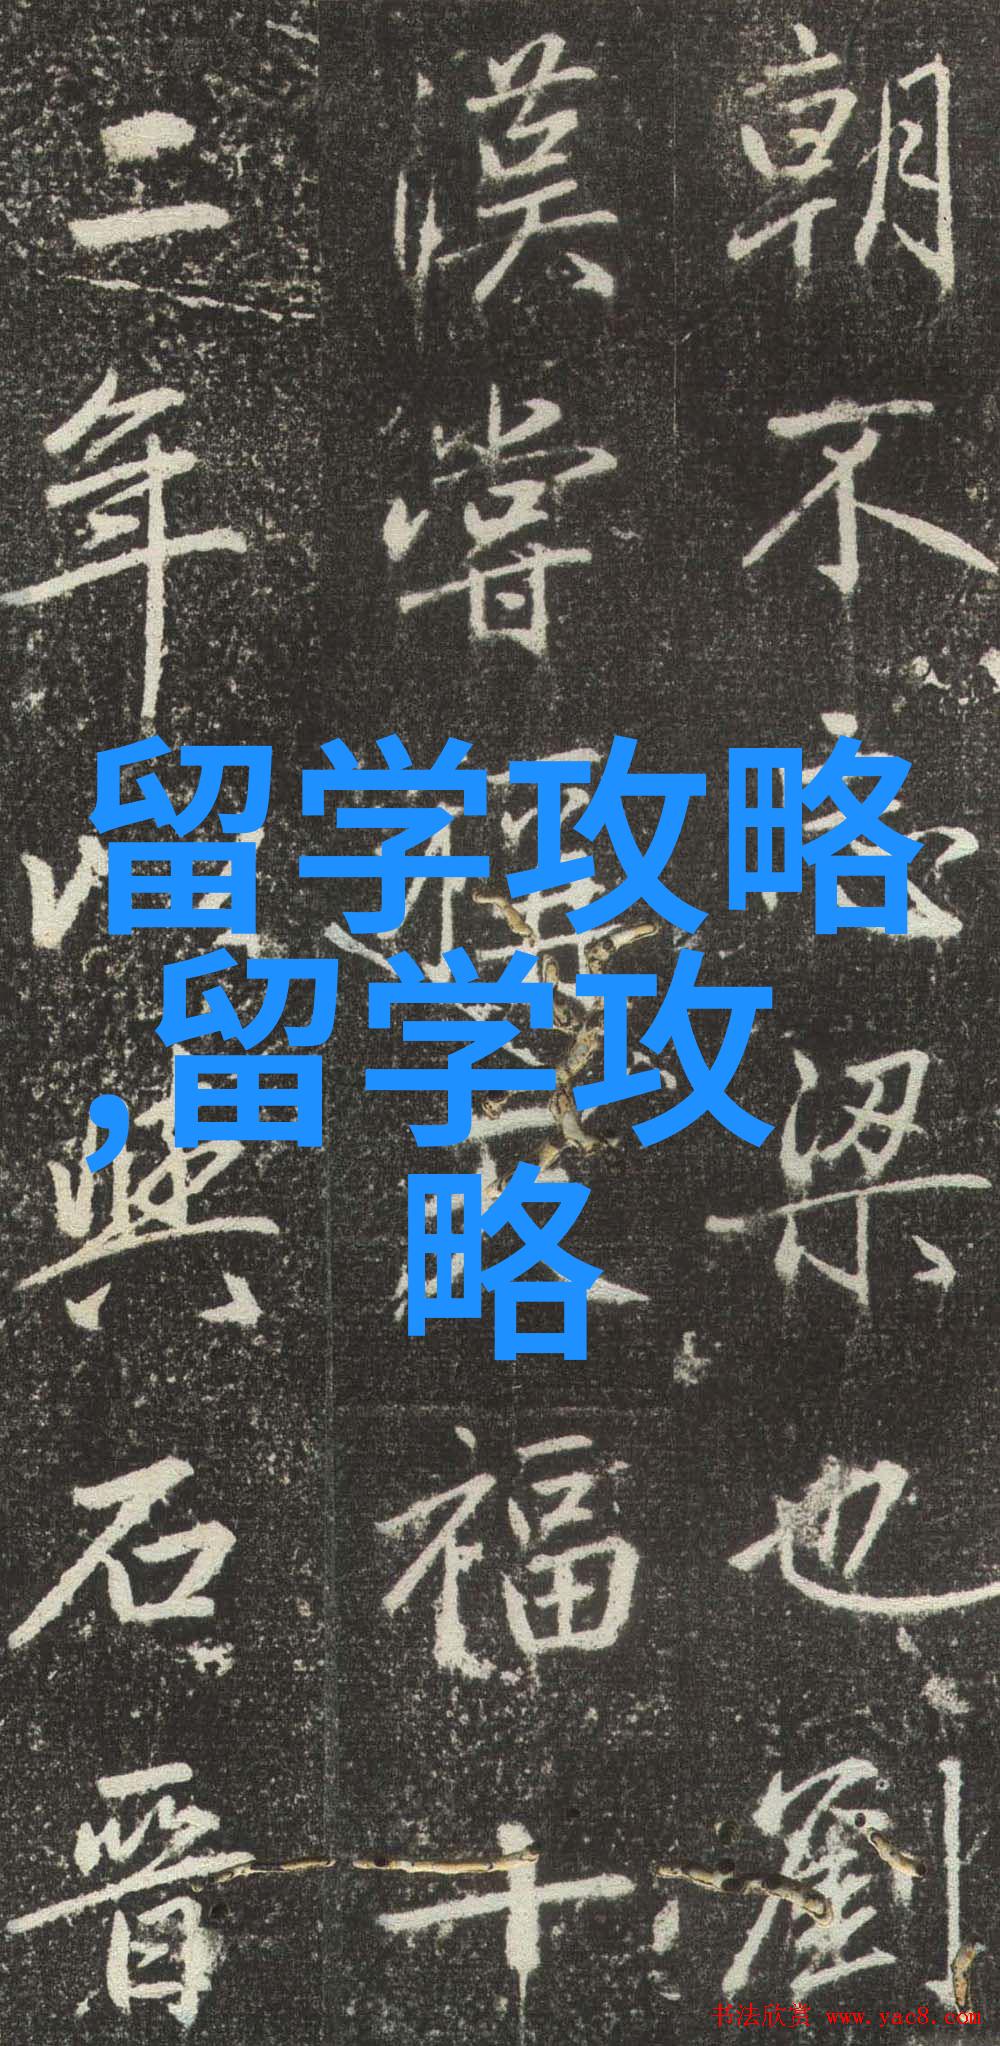 朝不梁也劉
漢嘗福十
二年與石晉
留学攻略
,留学攻
略
书法欣赏 www.yac8.com